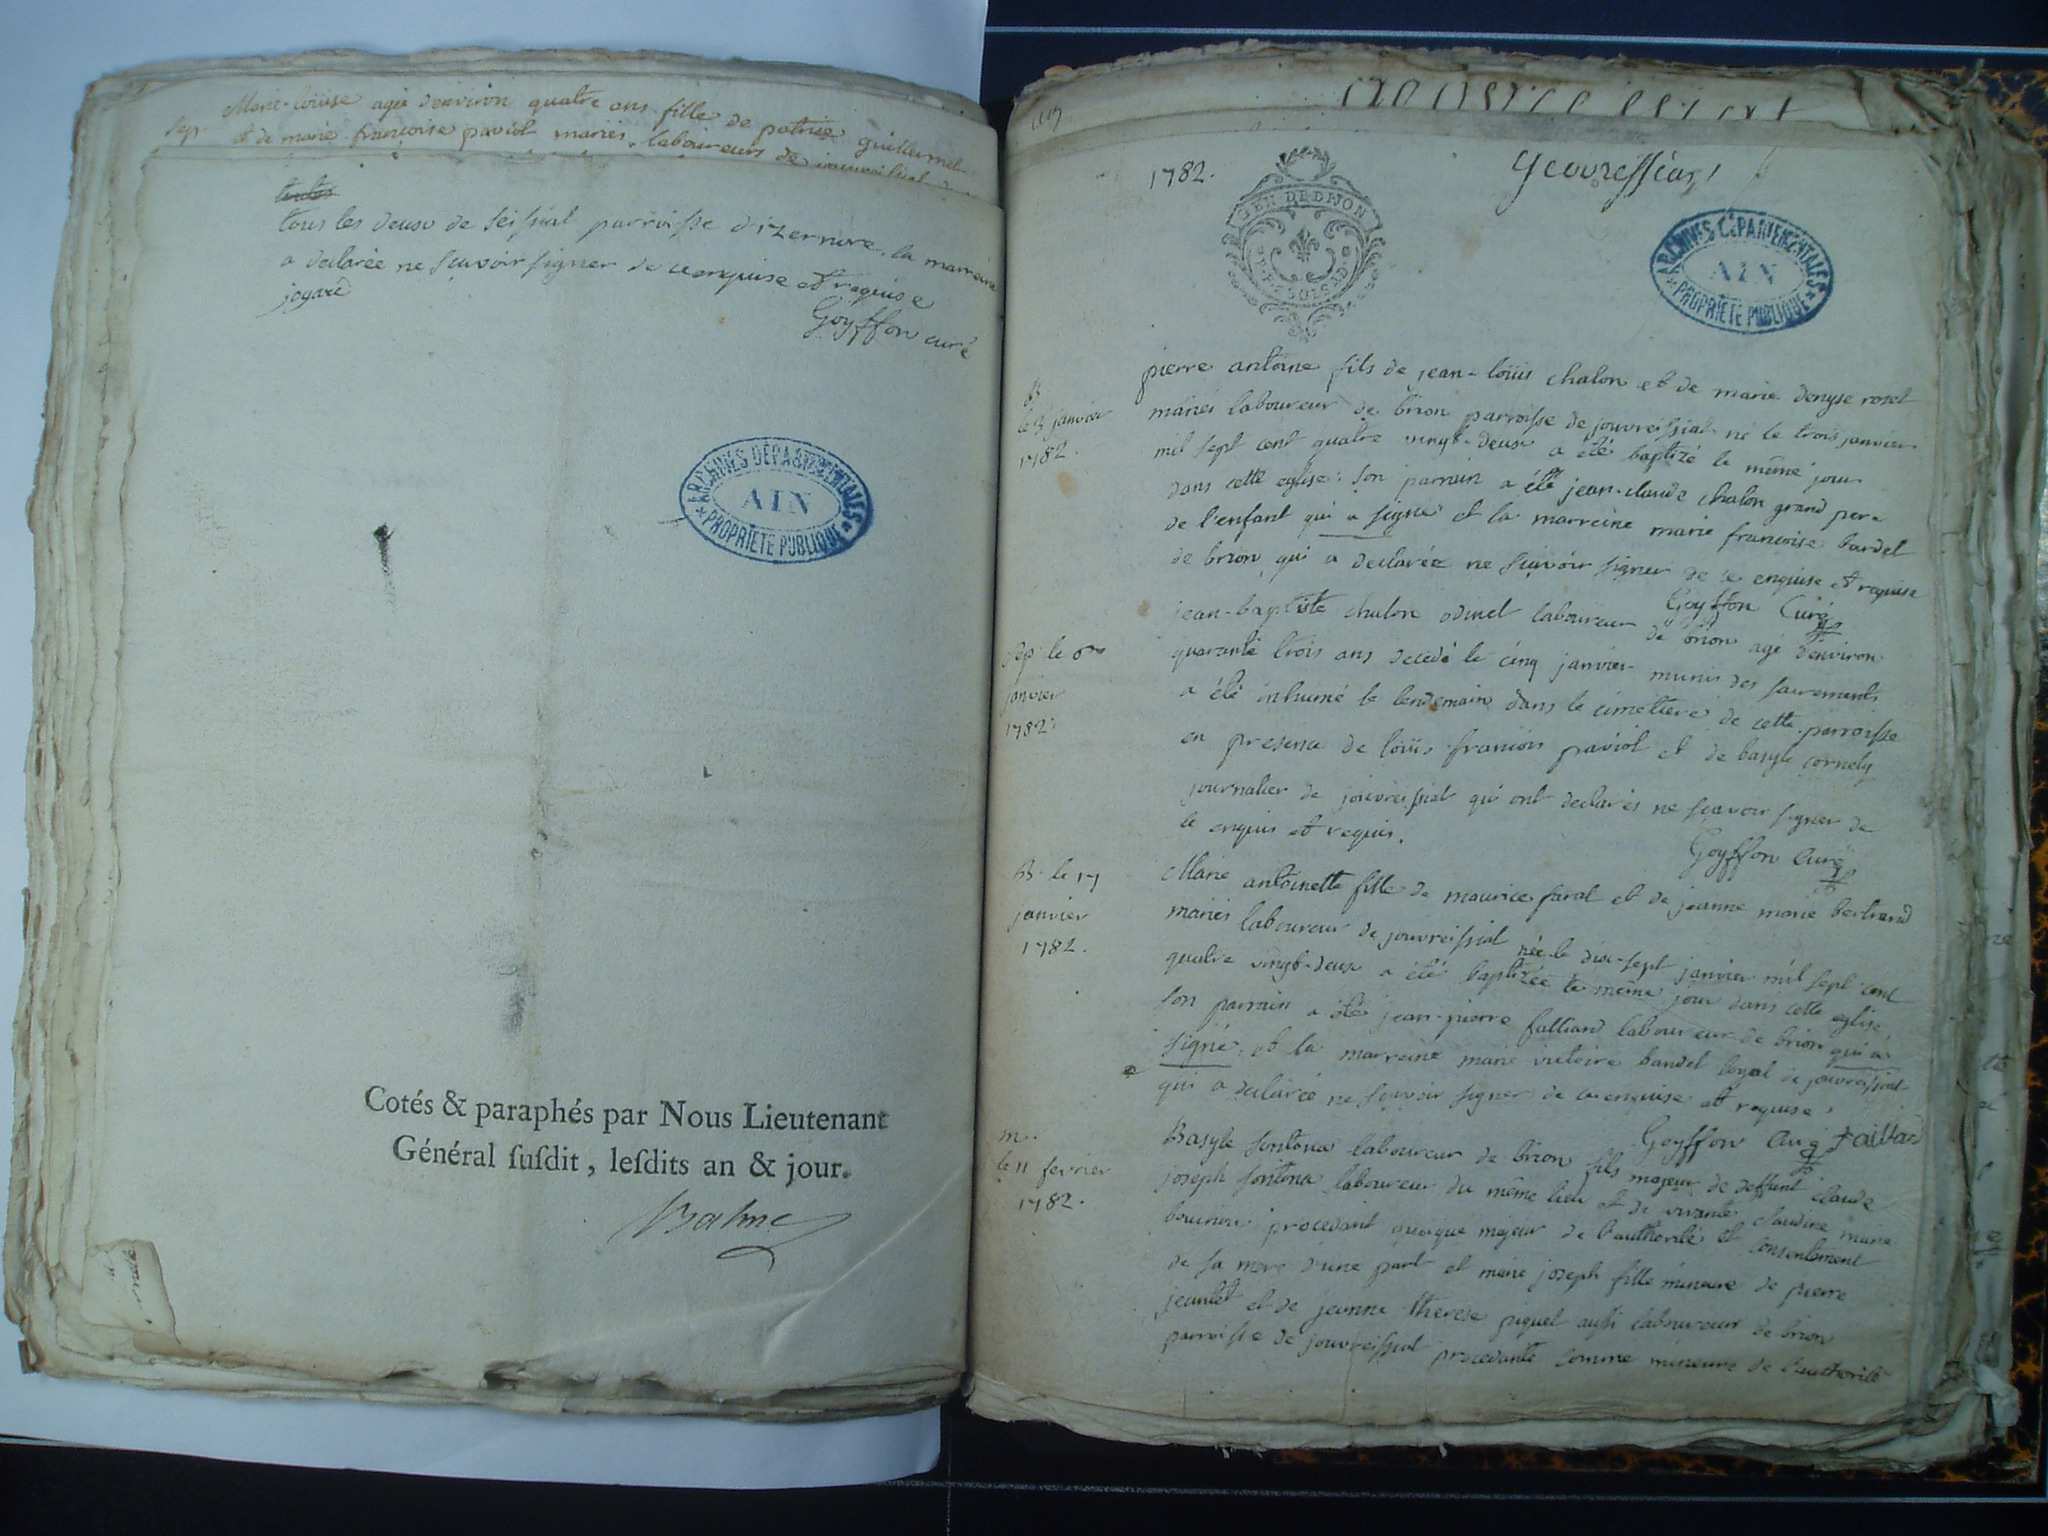 Marie-loüise agée d'environ quatre ans fille de patrice guillermet
sep. et de marie françoise paviot mariés laboureurs de jouvreissiat
toutes
tous les deux de seissiat parroisse d'izernore. la marreine
a declarée ne sçavoir signer de ce enquise et requise
joyard
Goyffon curé
ARCHIVES DEPARTEMENTALES
AIN
PROPRIETE PUBLIQUE
Cotés & paraphés par Nous Lieutenant
Général susdit, lesdits an & jour.
1782.
Geovressiat
GEN. DE DIJON
ARCHIVES DEPARTEMENTALES
AIN
PROPRIETE PUBLIQUE
B.
le 3 janvier
1782.
pierre antoine fils de jean-loüis chalon et de marie denyse roset
mariés laboureur de brion parroisse de jouvreissiat né le trois janvier
mil sept cent quatre vingt-deux a été baptizé le même jour
dans cette eglise: son parrain a été jean-claude chalon grand pere
de l'enfant qui a signé et la marreine marie françoise bardel
de brion qui a declarée ne sçavoir signer de ce enquise et requise
Goyffon Curé
sep. le 6me
janvier
1782.
jean-baptiste chalon odinet laboureur de brion agé d'environ
quarante trois ans decedé le cinq janvier munis des sacrements
a été inhumé le lendemain dans le cimetiere de cette parroisse
en presence de loüis françois paviot et de basyle cornely
journalier de jouvreissiat qui ont declarés ne sçavoir signer de
ce enquis et requis.
Goyffon Curé
B. le 17
janvier
1782.
Marie antoinette fille de maurice farat et de jeanne marie bertrand
mariés laboureur de jouvreissiat née le dix-sept janvier mil sept cent
quatre vingt-deux a été baptizée le même jour dans cette eglise
son parrain a été jean-pierre falliard laboureur de brion qui a
signé, et la marreine marie victoire bandet loyal de jouvreissiat
qui a declarée ne sçavoir signer de ce enquise et requise.
Goyffon Curé faillard
m.
le 11 fevrier
1782.
Basyle sontona laboureur de brion fils majeur de deffunt claude
joseph sontona laboureur du même lieu et de vivante claudine marie
procedant quoique majeur de l'authorité et consentement
de sa mere d'une part et marie joseph fille mineure de pierre
jeantet et de jeanne therese piquet aussi laboureur de brion
parroisse de jouvreissiat procedante comme mineure de l'authorité